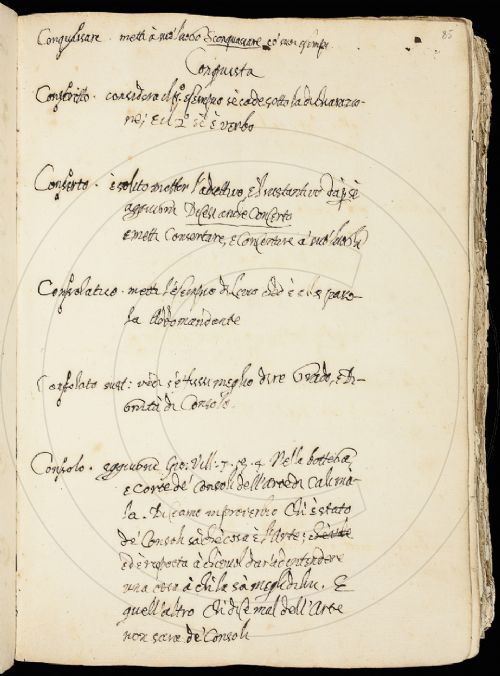 85
Conquassare. metti à suo luogo Sconquassare co' suoi esempi.
Conquista
Conscritto. considera il p.º esempio se cade sotto la dichiarazio-
ne, e il 2º se è verbo
Conserto. è solito metter l'adiettivo, e'l sustantivo da per sè
aggiugni Dicesi anche Concerto
e metti Consertare, e Concertare a' suoi luoghi
Consolatico. metti l'esempio di
la Addomandante
Consolato sust: vedi s'è fussi meglio dire Grado, e Di-
gnità di Consolo.
Consolo. aggiugni Gio: Vill. 7. 4 Nella bottega
e Corte de' Consoli dell'Arte di Calima-
la. Diciamo in proverbio Chi è stato
de' Consoli sà che cosa è l'Arte;
ed è risposta à chi vuol dar ad intendere
una cosa à chi la sà meglio di lui. E
quell'altro Chi dice mal dell'Arte
non sarà de' Consoli